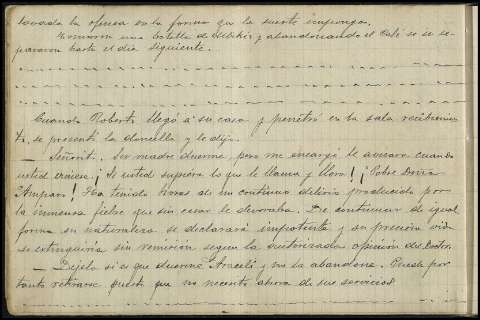 lavada la ofensa en la forma que la suerte imponga.
Tomaron una botella de Elikir y abandonando el Café se se-
pararon hasta el dia siguiente.
Cuando Roberto llegó á su casa y penetró en la sala recibimien
to, se presentó la doncella y le dijo.
— Señorito. Su madre duerme, pero me encargó le avisara cuando
usted viniera. ¡ Si usted supiera lo que le llama y llora! ¡ Pobre Doña
Amparo! Ha tenido horas de un continuo delirio producido por
la inmensa fiebre que sin cesar le devoraba. De continuar de igual
forma su naturaleza se declarará impotente y su preciosa vida
se extinguiria sin remisión segun la autorizada opinión del Doctor.
— Dejela si es que duerme Araceli y no la abandone. Puede por
tanto retirarse puesto que no necesito ahora de sus servicios.